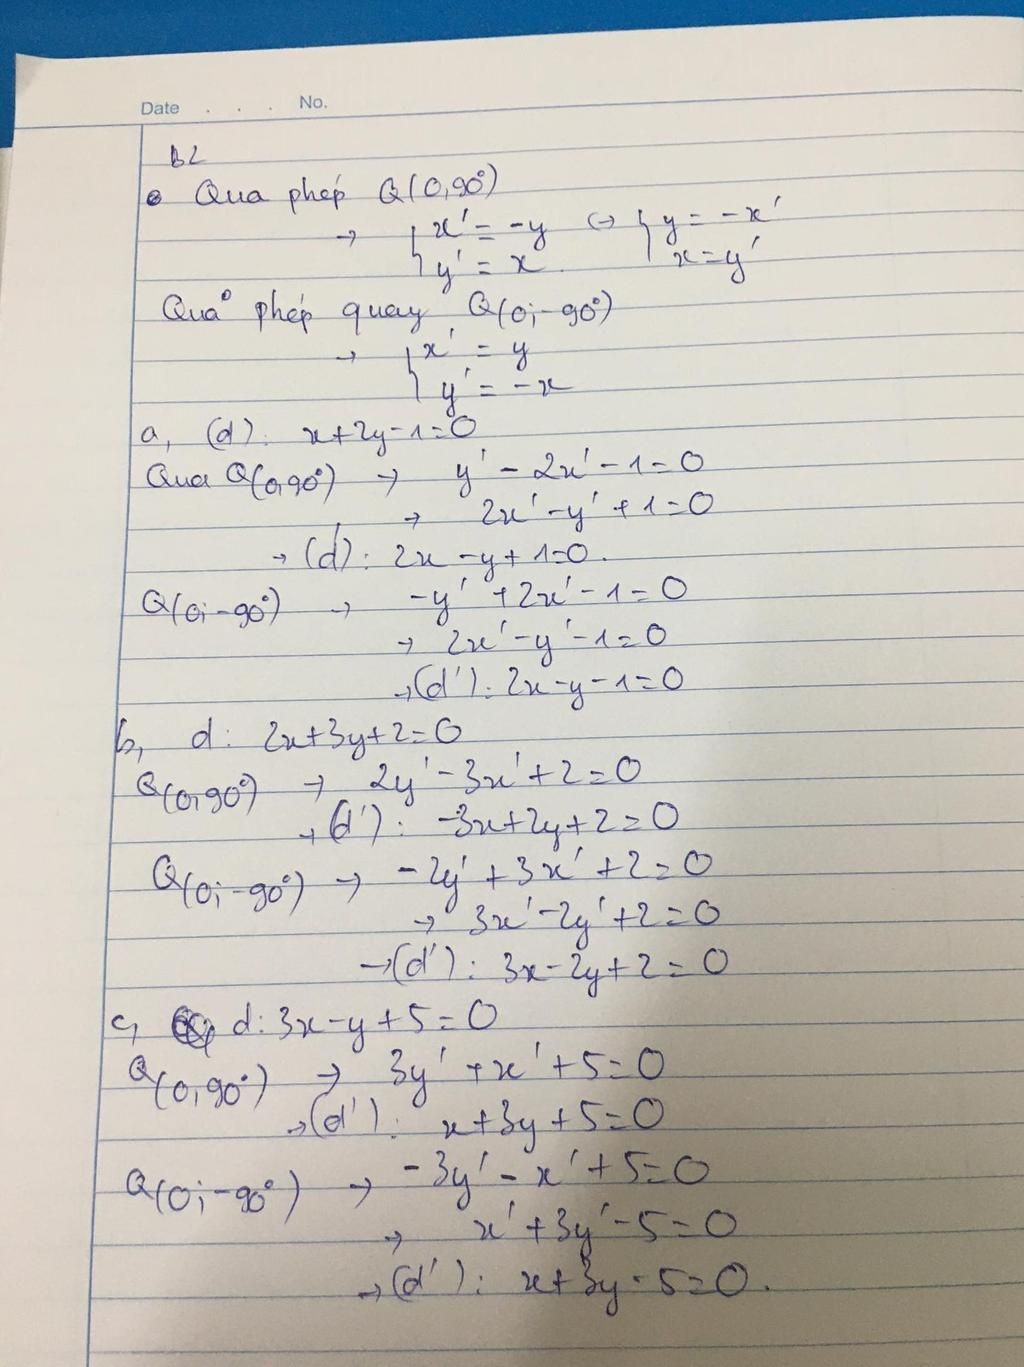 Date . . . No.
b2
Qua phép Q(0,90°)
→ { x' = -y ↔ { y = -x'
y' = x x = y'
Qua phép quay Q(0;-90°)
→ { x' = y
y' = -x
a, (d): x+2y-1=0
Qua Q(0,90°) → y' - 2x' - 1 = 0
→ 2x' - y' + 1 = 0
→ (d'): 2x - y + 1 = 0.
Q(0;-90°) → -y' + 2x' - 1 = 0
→ 2x' - y' - 1 = 0
→ (d'): 2x - y - 1 = 0
b, d: 2x+3y+2=0
Q(0,90°) → 2y' - 3x' + 2 = 0
→ (d'): -3x+2y+2=0
Q(0;-90°) → -2y' + 3x' + 2 = 0
→ 3x' - 2y' + 2 = 0
→ (d'): 3x - 2y + 2 = 0
c, d: 3x - y + 5 = 0
Q(0,90°) → 3y' + x' + 5 = 0
→ (d'): x + 3y + 5 = 0
Q(0;-90°) → -3y' - x' + 5 = 0
→ x' + 3y' - 5 = 0
→ (d'): x + 3y - 5 = 0.